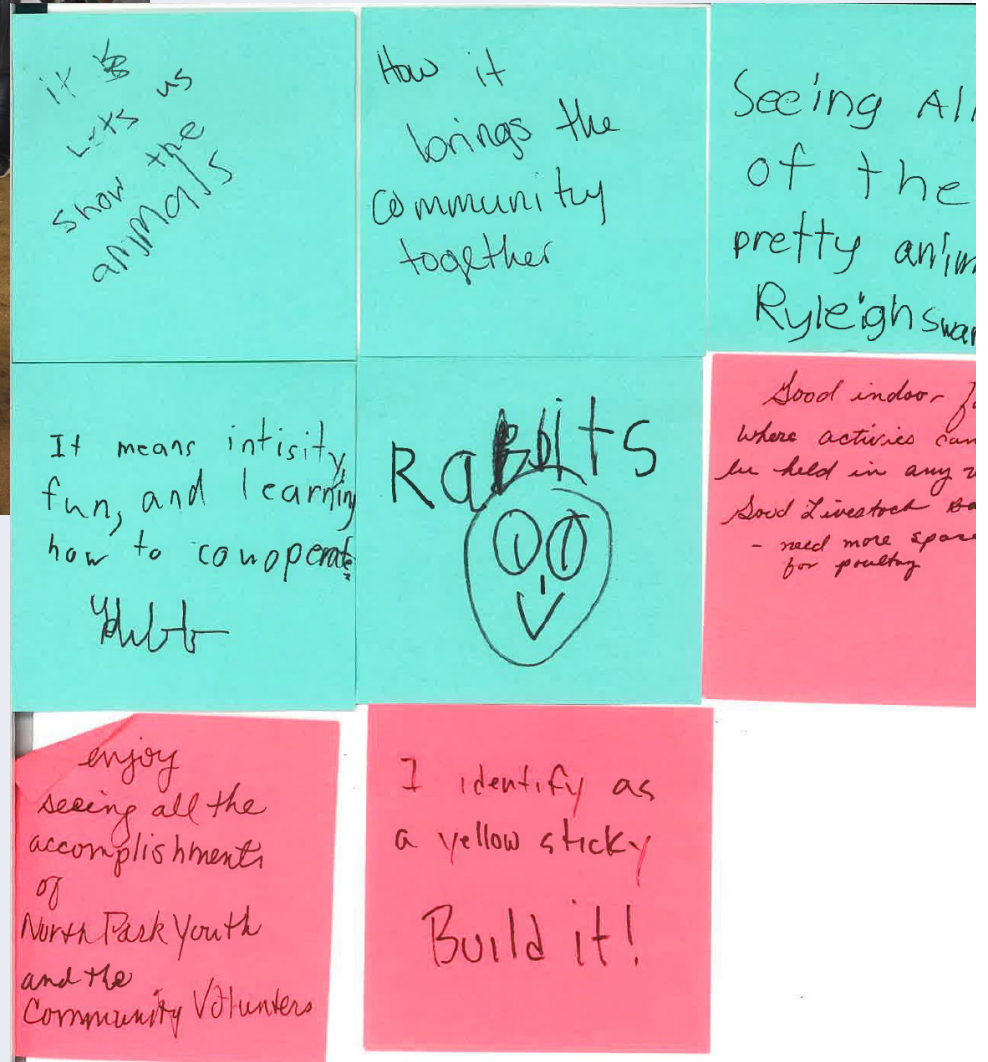 it
Lets us
show the
animals
How it
brings the
community
together
Seeing All
of the
pretty anim
Ryleigh swar
It means intisity,
fun, and learning
how to conoperate
RaBbits
Good indoor fa
where activies can
be held in any w
Good Livestock
- need more space
for poultry
enjoy
seeing all the
accomplishments
of
North Park Youth
and the
Community Volunters
I identify as
a yellow sticky
Build it!